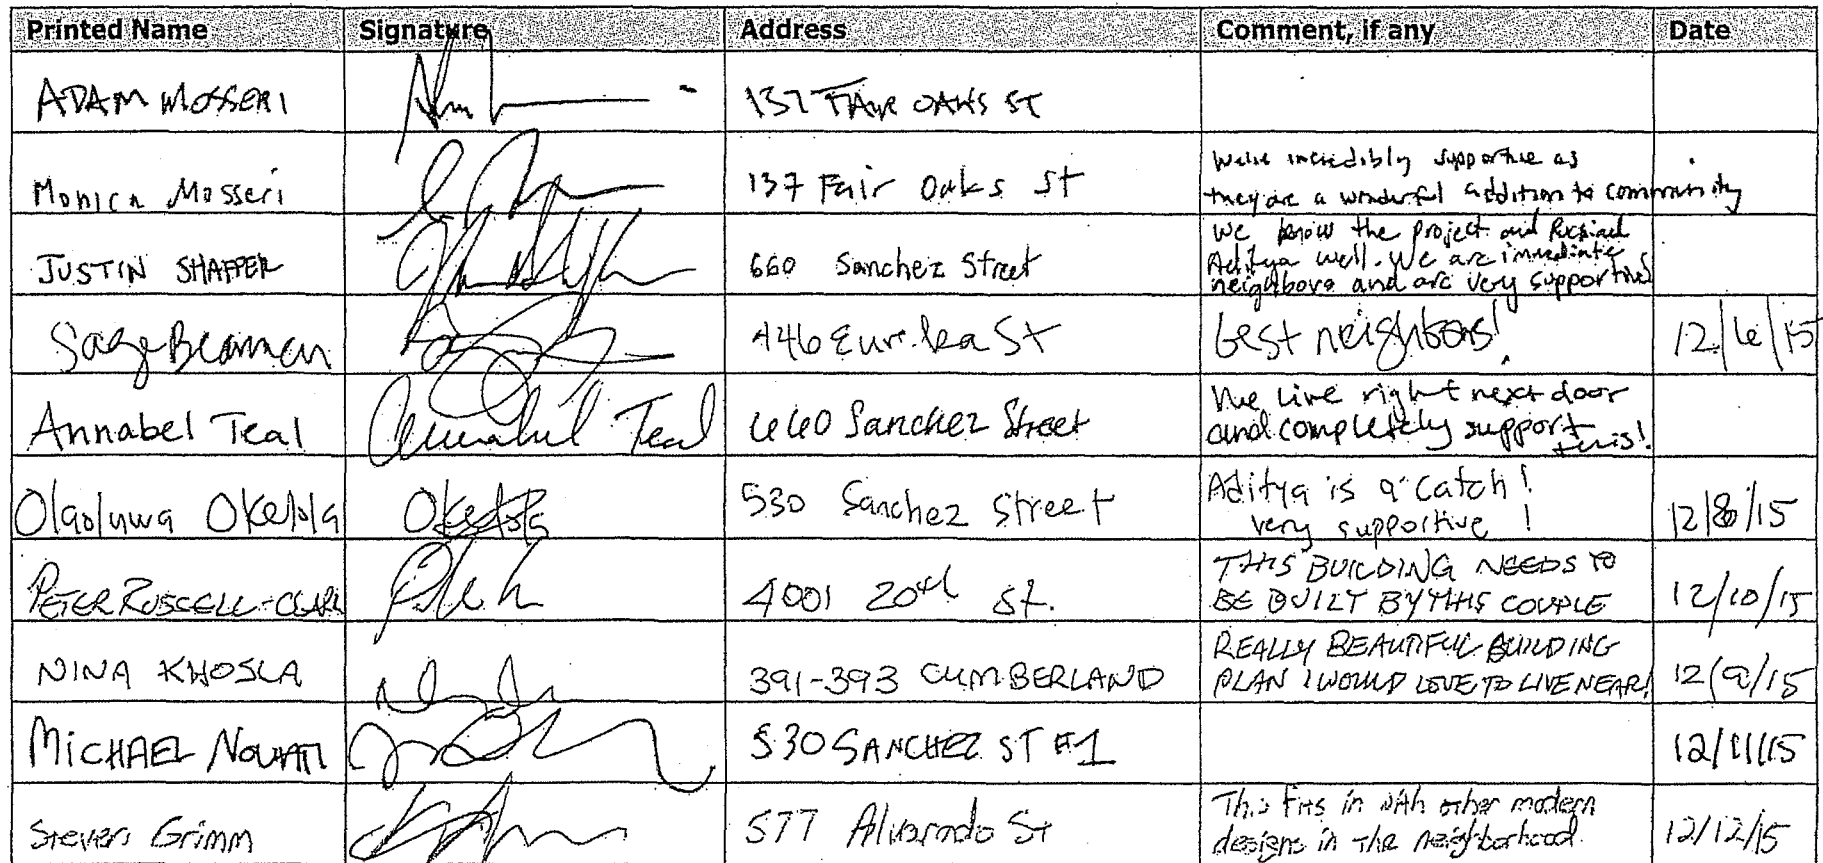 Printed Name Signature Address Comment, if any Date
ADAM MOSSERI 137 FAIR OAKS ST
Monica Mosseri 137 Fair Oaks St We're incredibly supportive as
they are a wonderful addition to community
JUSTIN SHAFFER 660 Sanchez Street We know the project and
Aditya well. We are immediate
neighbors and are very supportive
Sage Beaman 446 Eureka St best neighbors! 12/6/15
Annabel Teal Annabel Teal 660 Sanchez Street We live right next door
and completely support
this!
Olaoluwa Okelola Okelola 530 Sanchez Street Aditya is a catch!
very supportive! 12/8/15
PETER RUSSELL-CLARKE 4001 20th St. THIS BUILDING NEEDS TO
BE BUILT BY THIS COUPLE 12/10/15
NINA KHOSLA 391-393 CUMBERLAND REALLY BEAUTIFUL BUILDING
PLAN I WOULD LOVE TO LIVE NEAR! 12/9/15
MICHAEL NOVATI 530 SANCHEZ ST #1 12/11/15
Steven Grimm 577 Alvarado St This fits in with other modern
designs in the neighborhood. 12/12/15